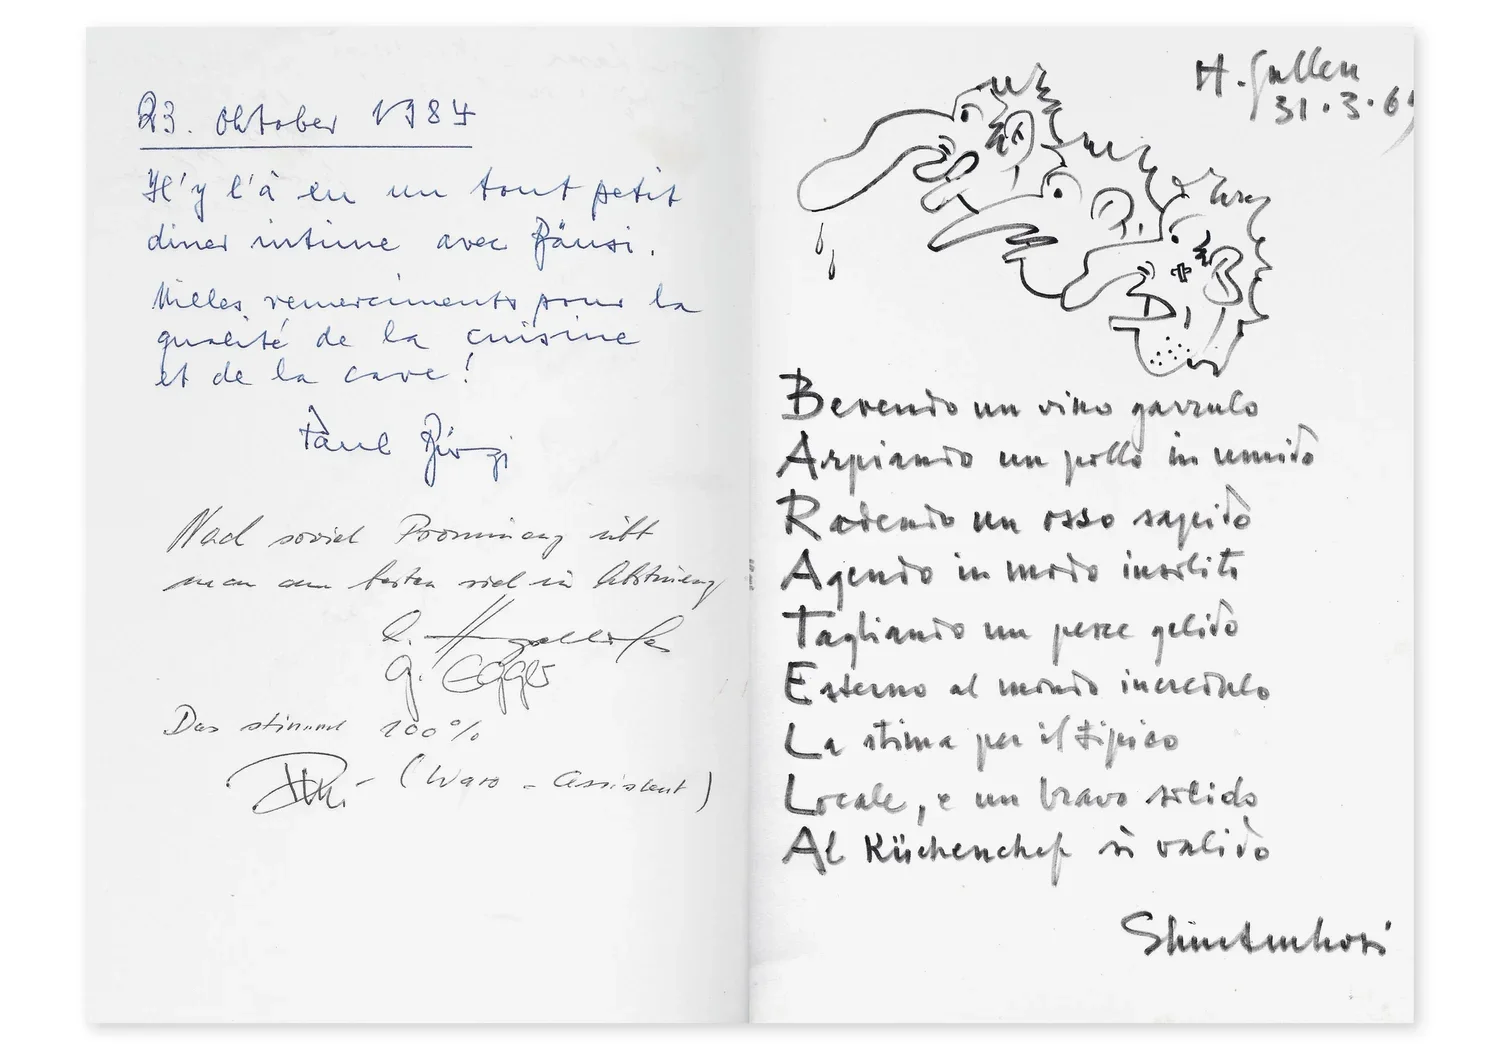 23. Oktober 1984
Il'y l'à eu un tout petit
diner intime avec Hänsi.
Milles remerciments pour la
qualité de la cuisine
et de la cave!
Paul
Nach soviel Prominenz übt
man am besten sich in Abstinenz
G. Egger
Das stimmt 100%
- ( - Assistent)
H. Gallen
31.3.69
Bevendo un vino garrulo
Arpiando un pollo in umido
Radendo un osso sapido
Agendo in modo insolito
Tagliando un pesce gelido
Esterno al mondo incredulo
La stima per il tipico
Locale, e un bravo solido
Al Küchenchef sì valido